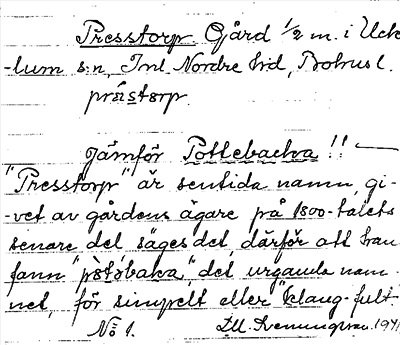 Presstorp. Gård 1/2 m. i Uck-
-lum s:n, Inl. Nordre hd, Bohusl.
prästorp.
Jämför Pottebacka!! —
"Presstorp" är sentida namn, gi-
-vet av gårdens ägare på 1800-talets
senare del, säges det, därför att han
fann "pòtəbaka", det urgamla nam-
net, för simpelt eller "klang-fult."
No 1.
1941